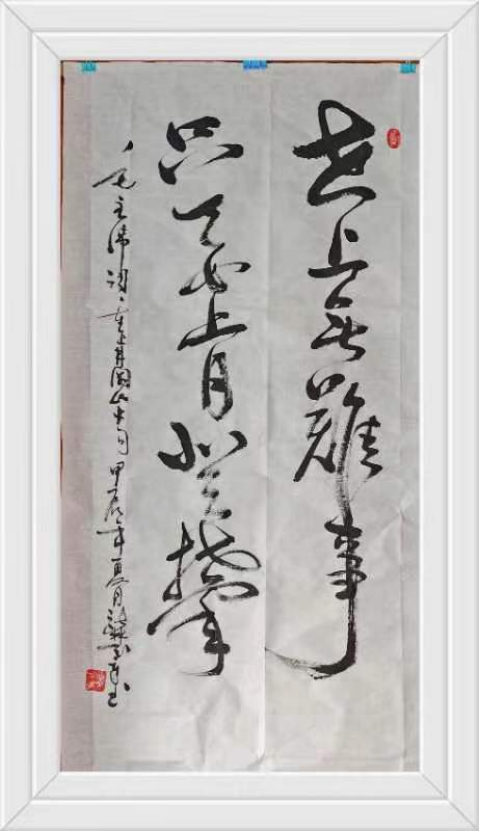 世上无難事
只要肯登攀
毛主席词、重上井岡山中句 甲辰年夏月